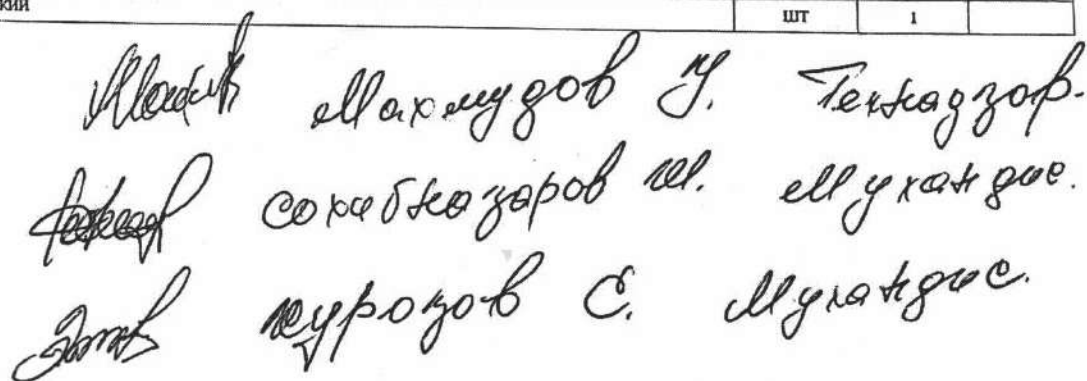 кий шт 1
Махмудов У. Технадзор.
Сохибназаров Ш. Мухандис.
Мухандис.